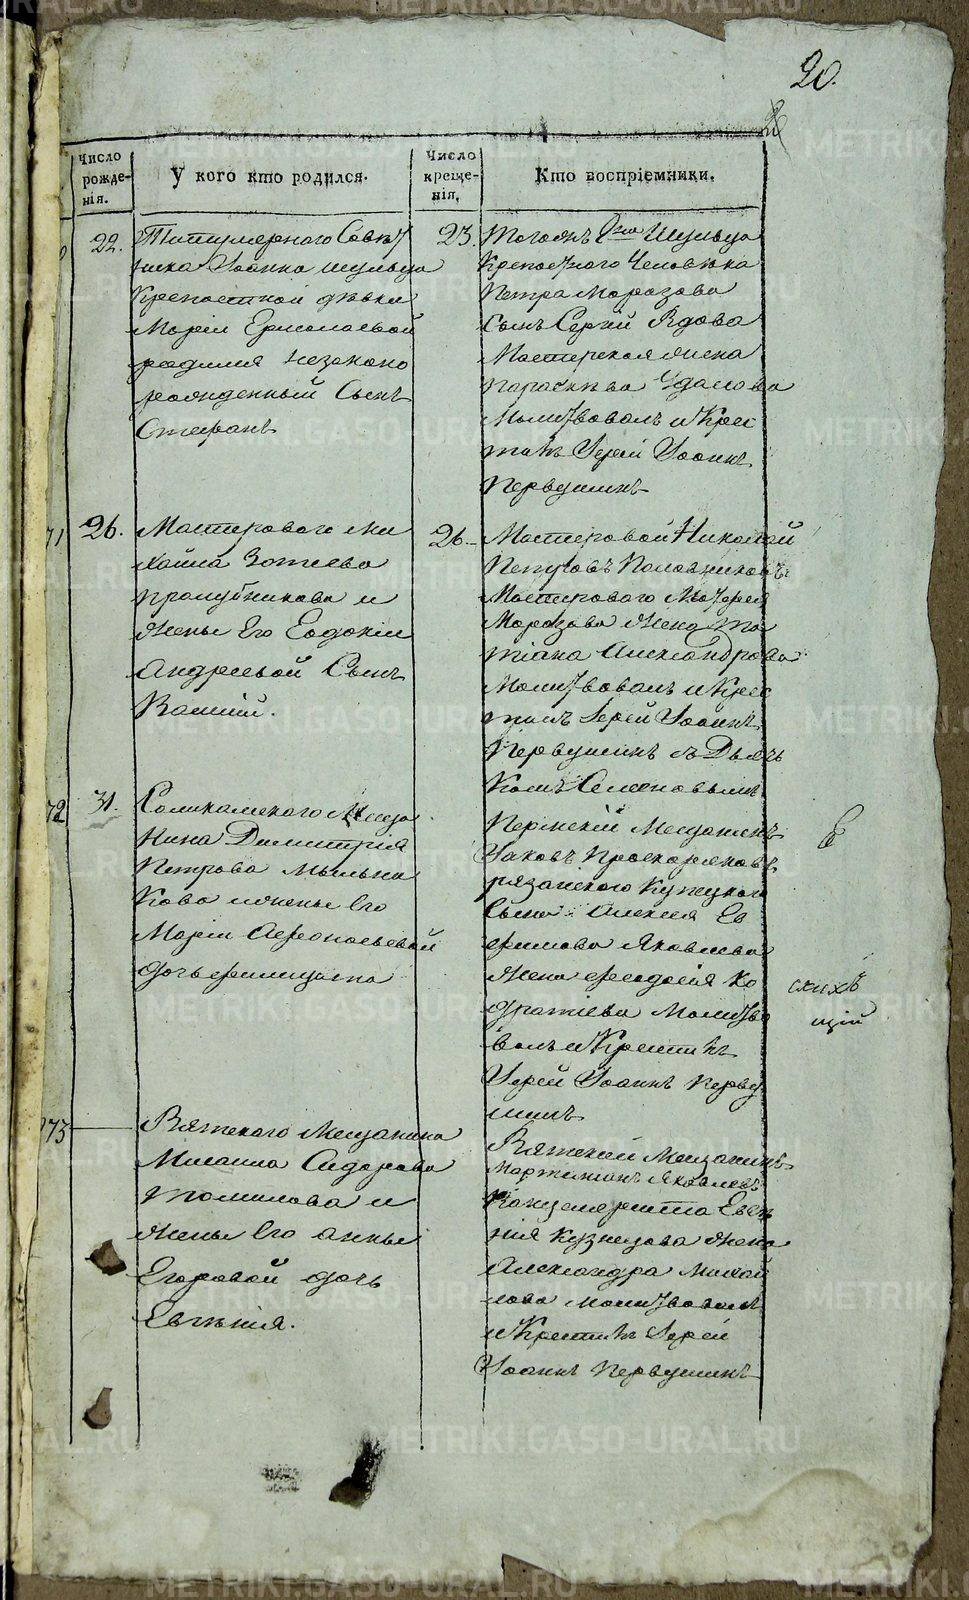 20.
Число рожденія.
У кого кто родился.
Число крещенія.
Кто воспріемники.
22.
Титулярнаго Совѣт
ника Іоанна Шульца
Крепостной дѣвки
Маріи Ермолаевой
родился незаконо
рожденный Сынъ
Стефанъ
23.
Тогожъ Гдна Шульца
Крепостного Человѣка
Петра Морозова
Сынъ Сергій Вдова
Мастерская жена
Параскѣва Удалова
Молитвовалъ и Крес
тилъ Іерей Іоаннъ
Первушинъ
71
26.
Мастероваго Ми
хайла Зотеева
и
жены Его Евдокіи
Андреевой Сынъ
Василій.
26
Мастеровой Николай
Петровъ Половниковъ
Мастероваго
Морозова жена Та
тіана Александрова
Молитвовалъ и Крес
тилъ Іерей Іоаннъ
Первушинъ съ Дьяч
комъ Семеновымъ
72
31.
Соликамскаго Меща
нина Димитрія
Петрова Мыльни
кова и жены Его
Маріи Афонасьевой
дочь Филицата
Пермскій Мещанинъ
Іаковъ
рязанского Купецкого
Сына Алексея Ев
фимова Яковлева
жена Феодосія Ко
дратіева Молитво
валъ и Крестилъ
Іерей Іоаннъ Перву
шинъ
скихъ
щій
73
Вятского Мещанина
Михаила Сидорова
Томилова и
жены Его Анны
Егоровой дочь
Евгенія.
Вятской Мещанинъ
Мартиніанъ Яковлевъ
Канцеляриста Евге
нія Кузнецова жена
Александра Михай
лова Молитвовалъ
и Крестилъ Іерей
Іоаннъ Первушинъ
METRIKI.GASO-URAL.RU